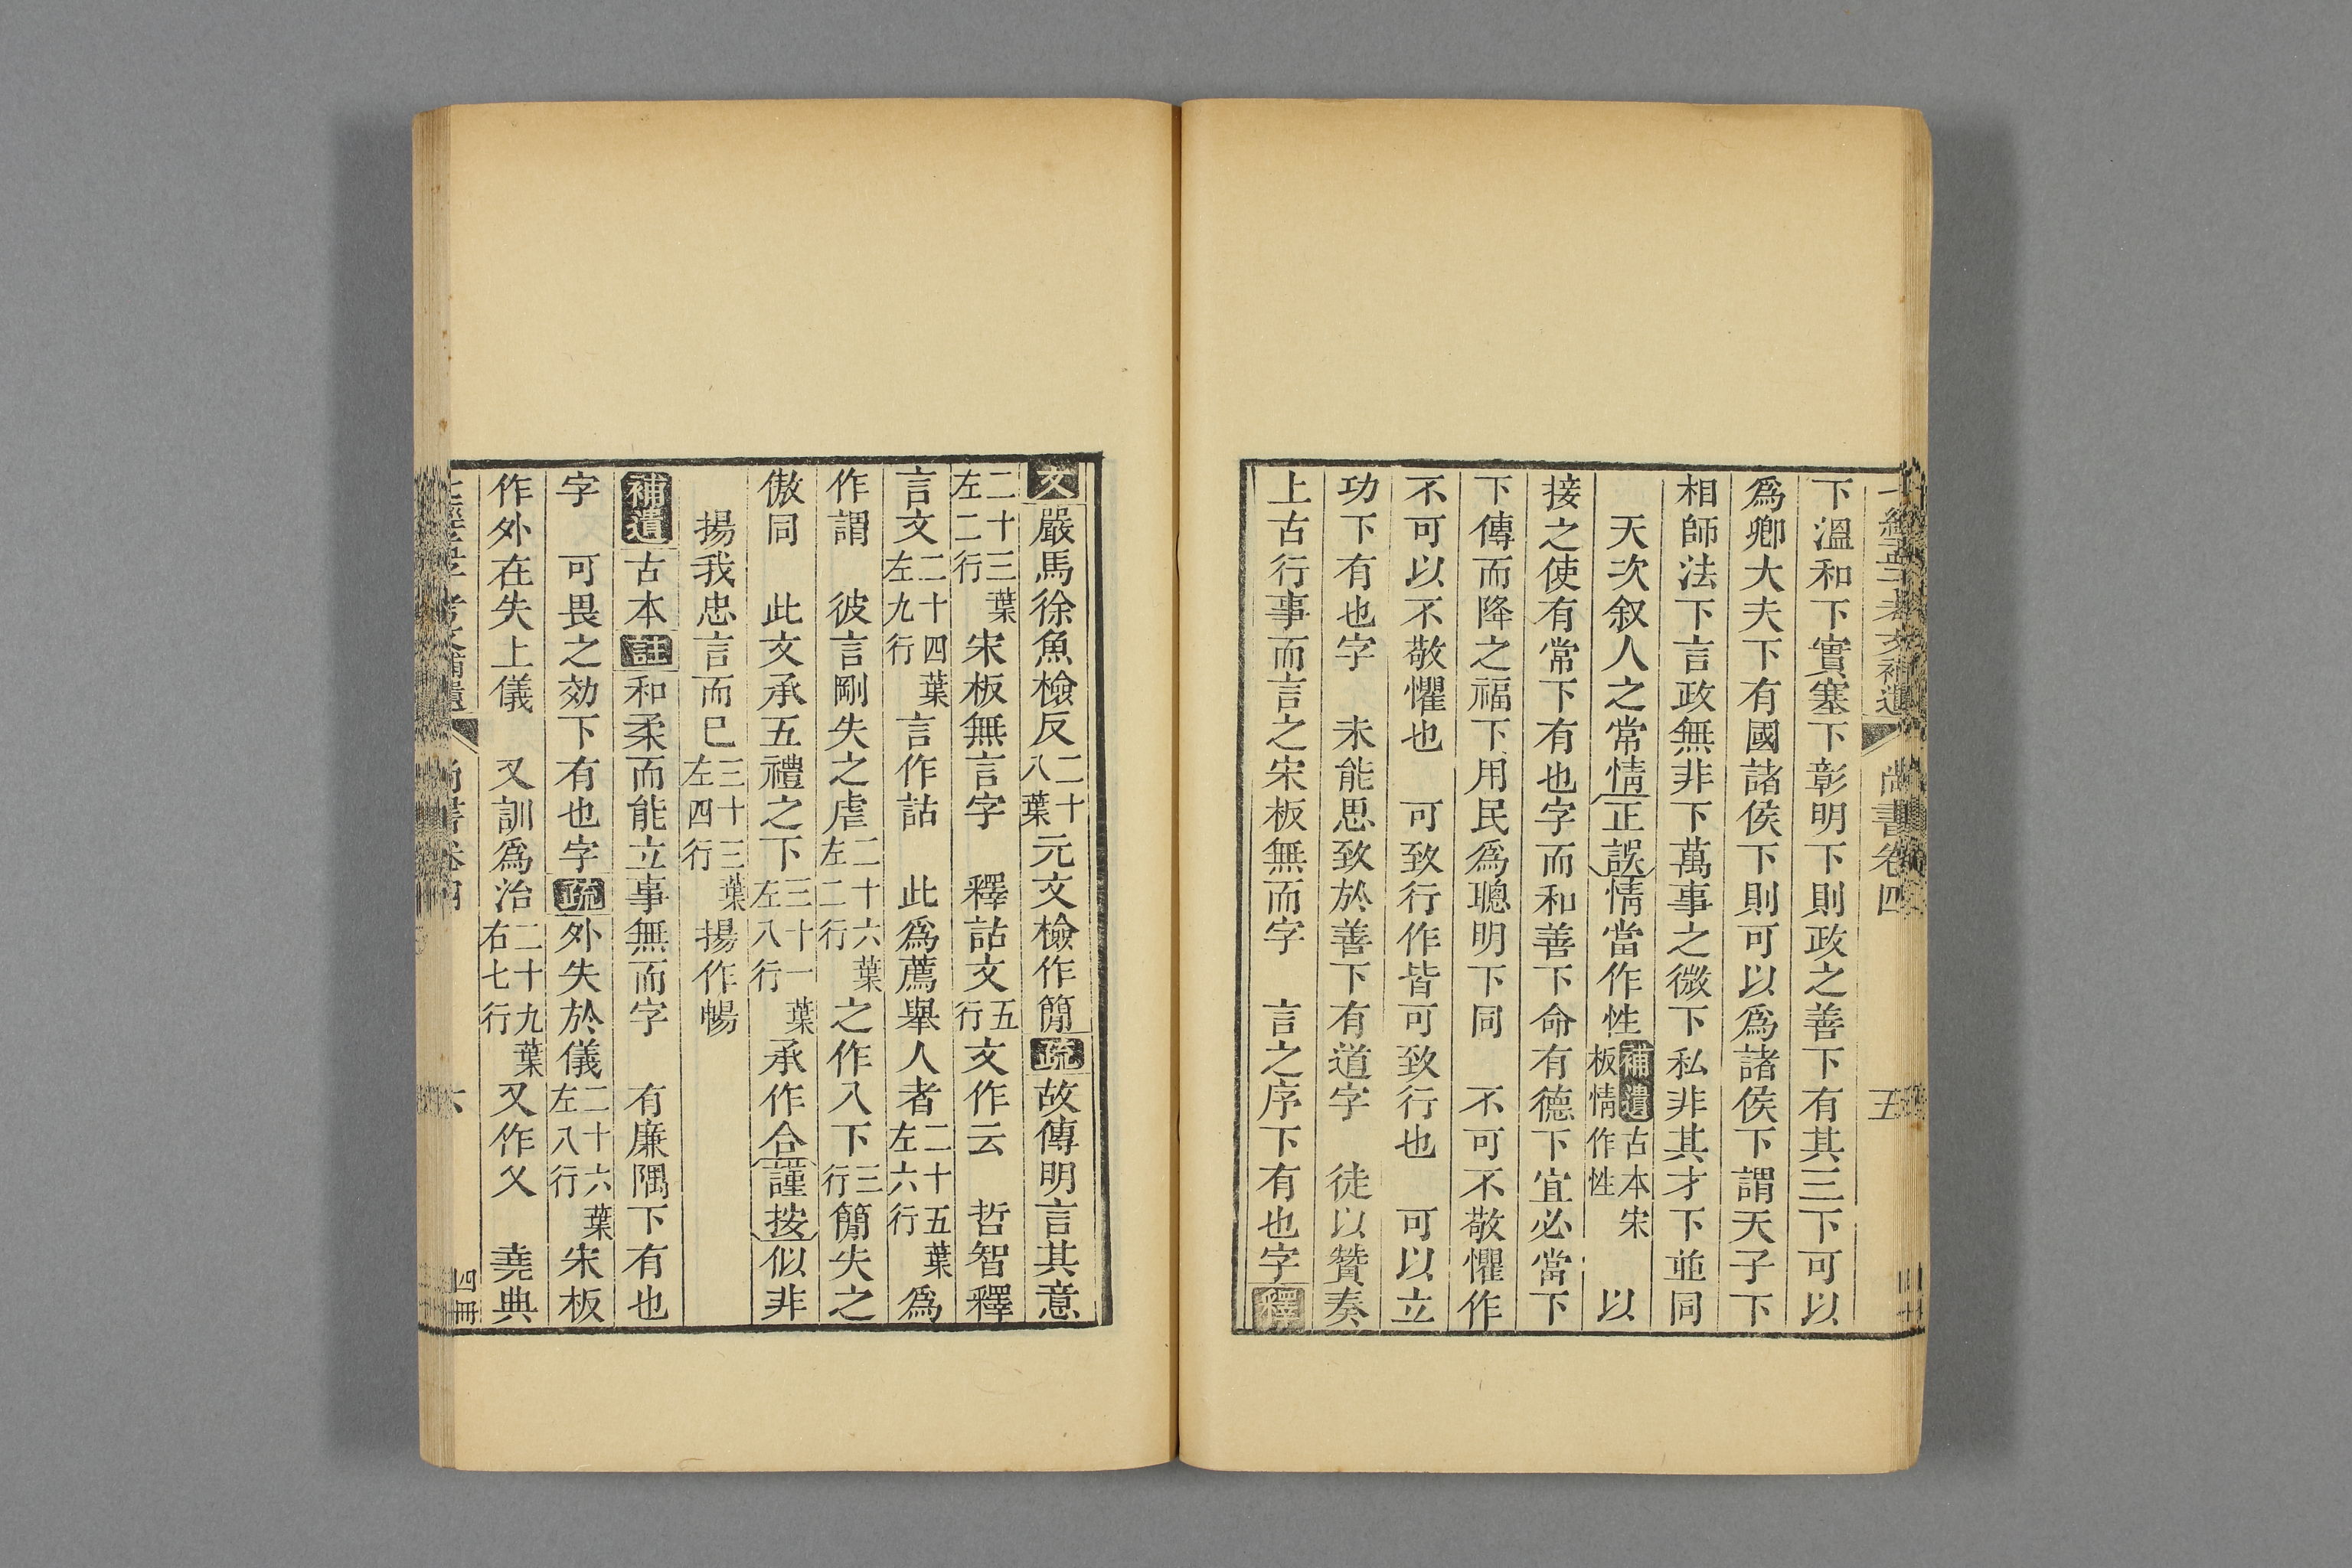 下溫和下實塞下彰明下則政之善下有其三下可以
爲卿大夫下有國諸侯下則可以爲諸侯下謂天子下
相師法下言政無非下萬事之微下私非其才下並同
天次叙人之常情正誤情當作性補遺古本宋板情作性 以
接之使有常下有也字而和善下命有德下宜必當下
下傳而降之福下用民爲聰明下同 不可不敬懼作
不可以不敬懼也 可致行作皆可致行也 可以立
功下有也字 未能思致於善下有道字 徒以贊奏
上古行事而言之宋板無而字 言之序下有也字釋
文嚴馬徐魚檢反二十八葉元文檢作簡疏故傳明言其意
二十三葉左二行宋板無言字 釋詁文五行文作云 哲智釋
言文二十四葉左九行言作詁 此爲薦舉人者二十五葉左六行爲
作謂 彼言剛失之虐二十六葉左二行之作入下三行簡失之
傲同 此文承五禮之下三十一葉左八行承作合謹按似非
揚我忠言而已三十三葉左四行揚作暢
補遺古本註和柔而能立事無而字 有廉隅下有也
字 可畏之効下有也字疏外失於儀二十六葉左八行宋板
作外在失上儀 又訓爲治二十九葉右七行又作乂 堯典
尚書卷四
五
六
四冊